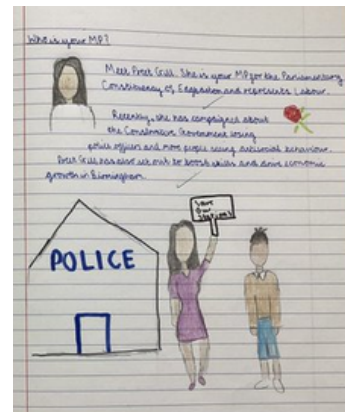 Who is your MP?
Meet Preet Gill. She is your MP for the Parliamentary
Constituency of Edgbaston and represents Labour.
Recently, she has campaigned about
the Conservative Government losing
police officers and more people seeing antisocial behaviour.
Preet Gill has also set out to boost skills and drive economic
growth in Birmingham.
Save
Our
Stations
POLICE